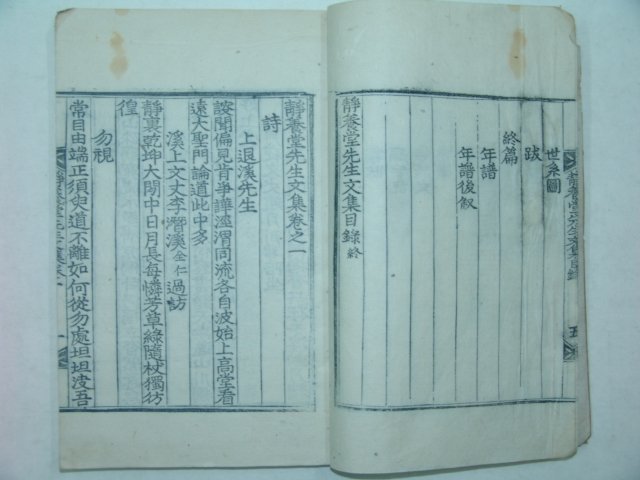 世系圖
跋
終篇
年譜
年譜後叙
靜養堂先生文集目錄 終
靜養堂先生文集卷之一
詩
上退溪先生
謏聞偏見肯爭譁涇渭同流各自波始上高堂看
遠大聖門論道此中多
溪上文丈李潛溪 全仁 過訪
靜裏乾坤大閒中日月長每憐芳草綠隨杖獨彷
徨
勿視
常目由端正須臾道不離如何從勿處坦坦